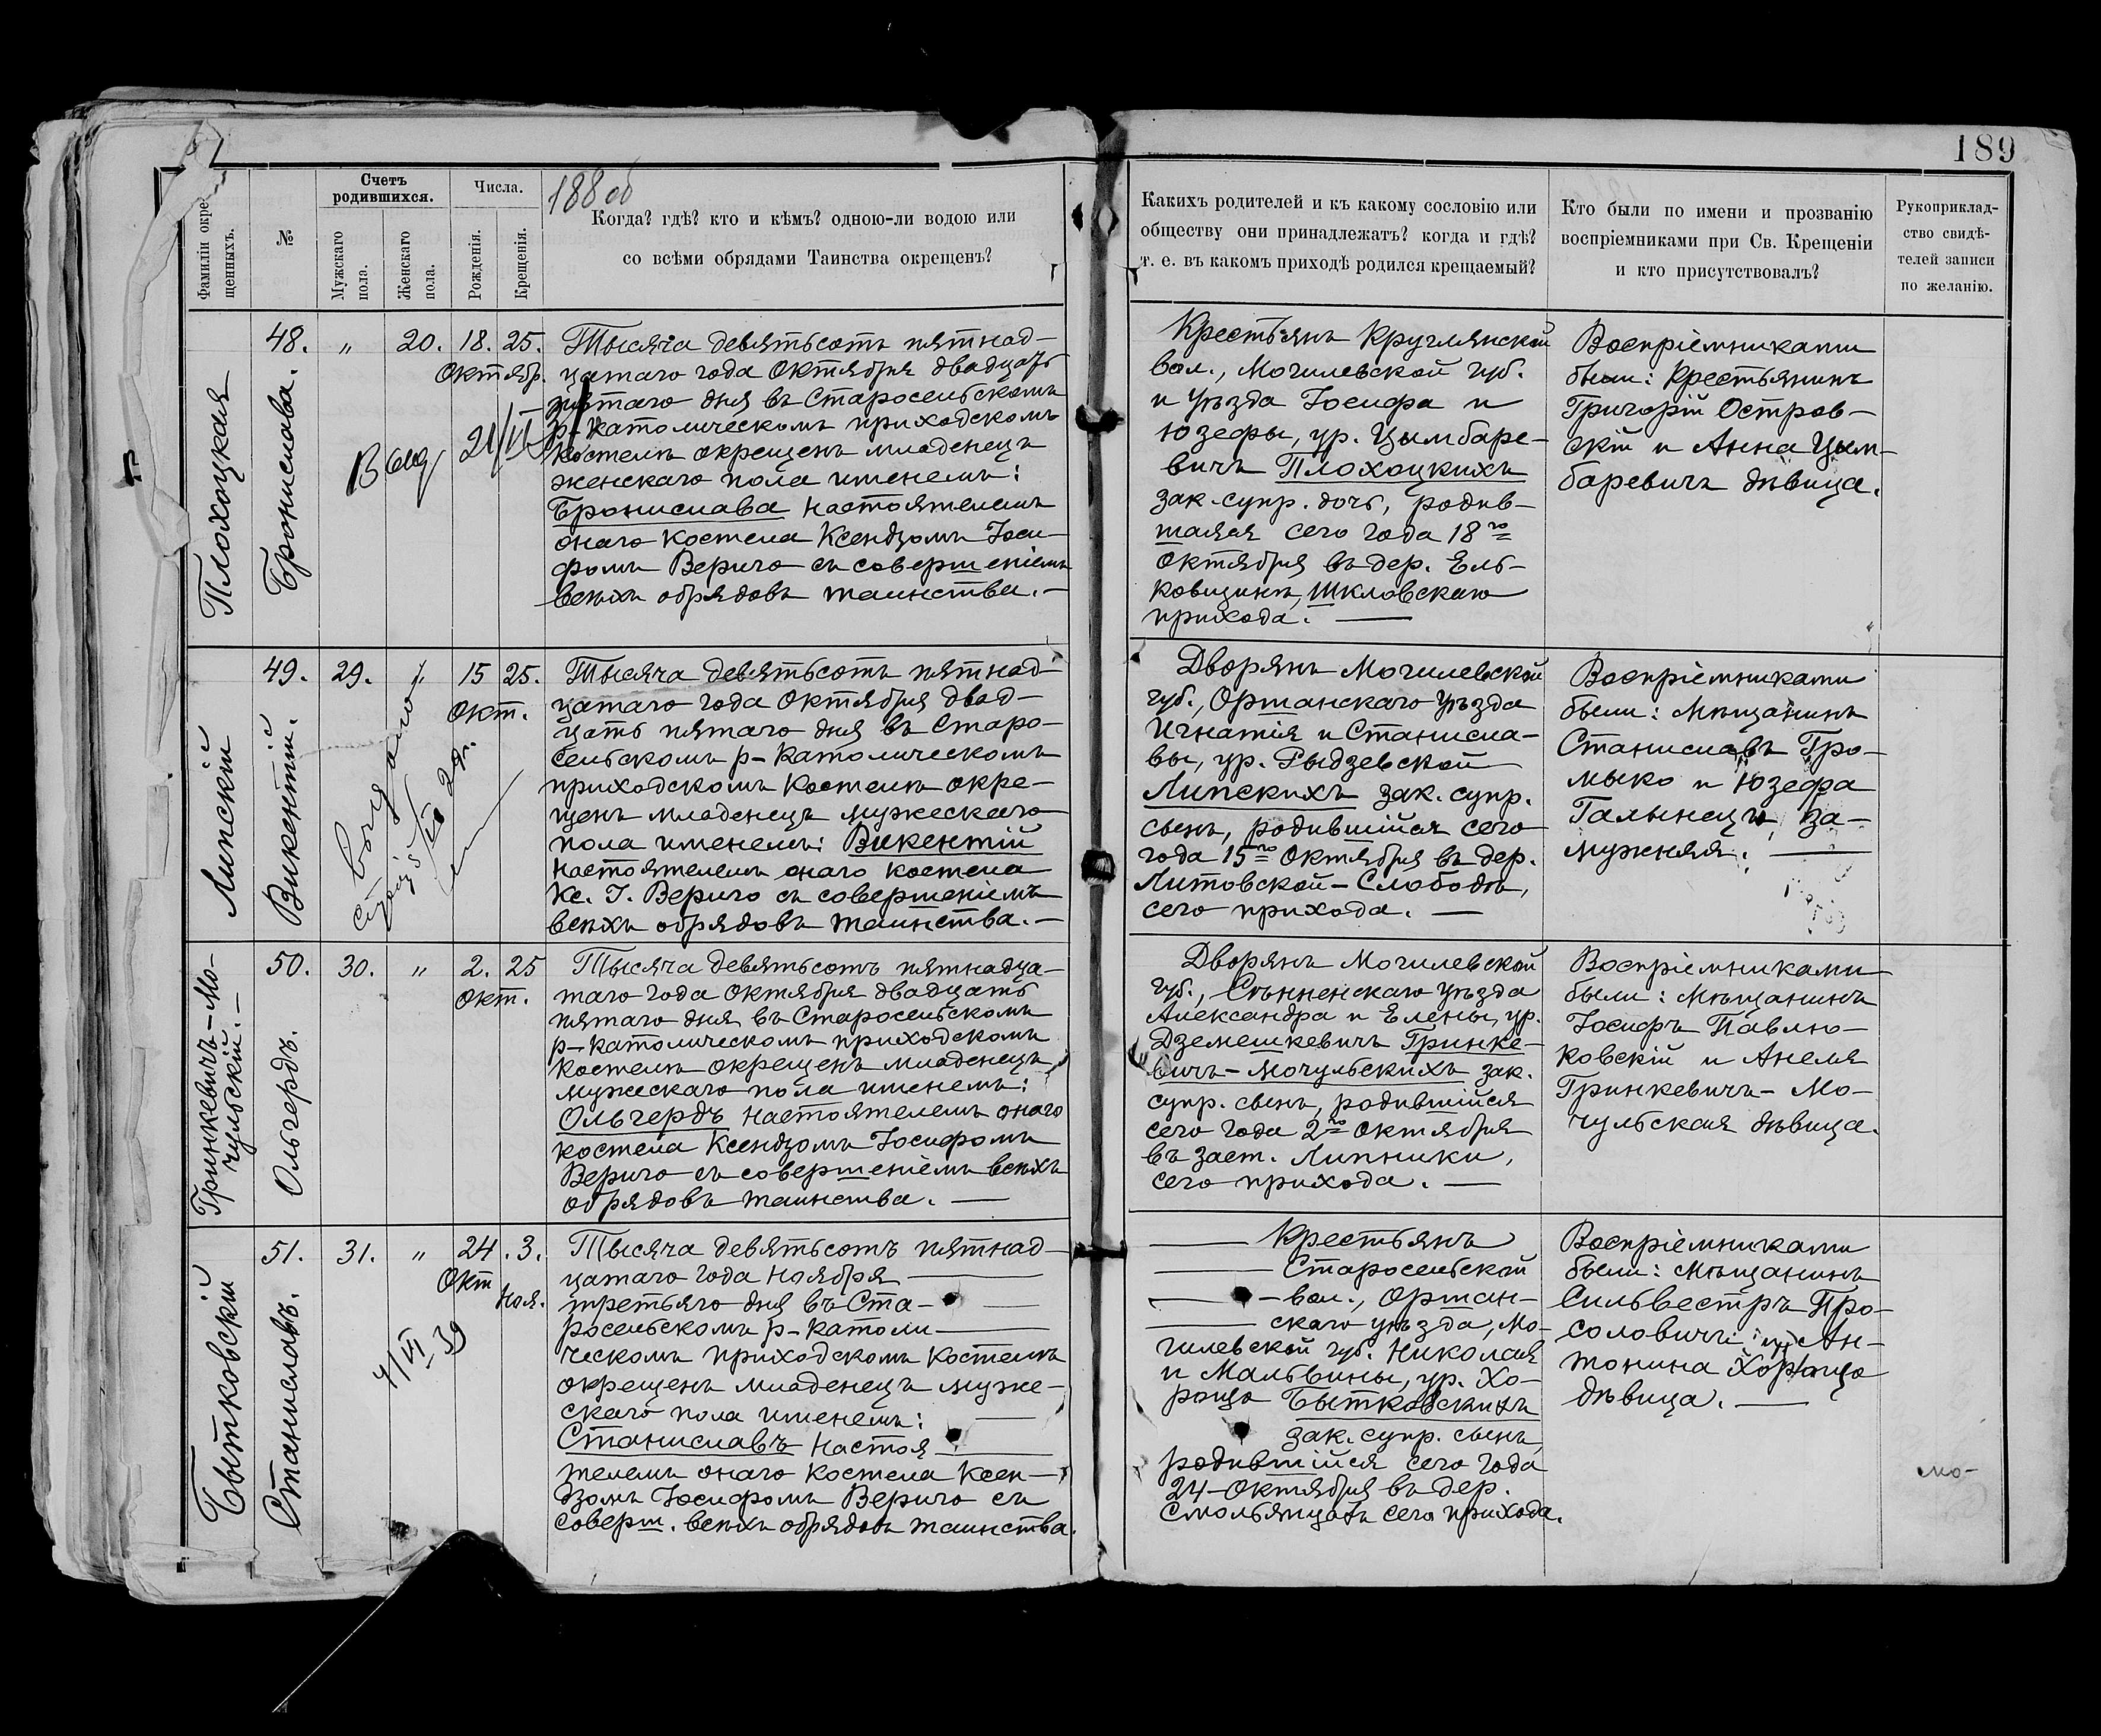 189
188 об
Фамиліи окре-
щенныхъ.
№
Счетъ
родившихся.
Мужскаго
пола.
Женскаго
пола.
Числа.
Рожденія.
Крещенія.
Когда? гдѣ? кто и кѣмъ? одною-ли водою или
со всѣми обрядами Таинства окрещенъ?
Какихъ родителей и къ какому сословію или
обществу они принадлежатъ? когда и гдѣ?
т. е. въ какомъ приходѣ родился крещаемый?
Кто были по имени и прозванію
воспріемниками при Св. Крещеніи
и кто присутствовалъ?
Рукоприклад-
ство свидѣ-
телей записи
по желанію.
Плохоцкая
Бронислава.
48. „ 20. 18. 25.
Октябр.
21/VI
Тысяча девятьсотъ пятнад-
цатаго года Октября двадцать
пятаго дня въ Старосельскомъ
р-католическомъ приходскомъ
костелѣ окрещенъ младенецъ
женскаго пола именемъ:
Бронислава настоятелемъ
онаго костела Ксендзомъ Іоси-
фомъ Верыго съ совершеніемъ
всѣхъ обрядовъ таинства.—
Крестьянъ Круглянской
вол., Могилевской губ.
и уѣзда Іосифа и
Юзефы, ур. Цымбаре-
вичъ Плохоцкихъ
зак. супр. дочь, родив-
шаяся сего года 18го
Октября въ дер. Ель-
ковщинѣ, Шкловскаго
прихода. —
Воспріемниками
были: Крестьянинъ
Григорій Остров-
скій и Анна Цым-
баревичъ дѣвица.
Липскій
Викентій.
49. 29. „ 15 25.
Окт.
Тысяча девятьсотъ пятнад-
цатаго года Октября двад-
цать пятаго дня въ Старо-
сельскомъ р-католическомъ
приходскомъ костелѣ окре-
щенъ младенецъ мужескаго
пола именемъ: Викентій
настоятелемъ онаго костела
Кс. І. Верыго съ совершеніемъ
всѣхъ обрядовъ таинства.—
Дворянъ Могилевской
губ., Оршанскаго уѣзда
Игнатія и Станисла-
вы, ур. Рыдзевской
Липскихъ зак. супр.
сынъ, родившійся сего
года 15го Октября въ дер.
Литовской-Слободѣ,
сего прихода. —
Воспріемниками
были: Мѣщанинъ
Станиславъ Гро-
мыко и Юзефа
Галынецъ, за-
мужняя. —
Гринкевичъ-Мо-
чульскій.—
Ольгердъ.
50. 30. „ 2. 25
Окт.
Тысяча девятьсотъ пятнадца-
таго года Октября двадцать
пятаго дня въ Старосельскомъ
р-католическомъ приходскомъ
костелѣ окрещенъ младенецъ
мужескаго пола именемъ:
Ольгердъ настоятелемъ онаго
костела Ксендзомъ Іосифомъ
Верыго съ совершеніемъ всѣхъ
обрядовъ таинства. —
Дворянъ Могилевской
губ., Сѣнненскаго уѣзда
Александра и Елены, ур.
Дземешкевичъ Гринке-
вичъ-Мочульскихъ зак.
супр. сынъ, родившійся
сего года 2го Октября
въ заст. Липники,
сего прихода. —
Воспріемниками
были: Мѣщанинъ
Іосифъ Павлю-
ковскій и Анеля
Гринкевичъ-Мо-
чульская дѣвица.
Бытковскій
Станиславъ.
51. 31. „ 24. 3.
Окт Ноя.
4/VI 39
Тысяча девятьсотъ пятнад-
цатаго года Ноября —
третьяго дня въ Ста-
росельскомъ р-католи-
ческомъ приходскомъ костелѣ
окрещенъ младенецъ муже-
скаго пола именемъ: —
Станиславъ настоя-
телемъ онаго костела Ксен-
дзомъ Іосифомъ Верыго съ
соверш. всѣхъ обрядовъ таинства.
— Крестьянъ
— Старосельской
— вол., Оршан-
— скаго уѣзда, Мо-
гилевской губ. Николая
и Мальвины, ур. Хо-
роща Бытковскихъ
зак. супр. сынъ,
родившійся сего года
24 Октября въ дер.
Смольянцахъ сего прихода.
Воспріемниками
были: Мѣщанинъ
Сильвестръ Про-
соловичъ и Ан-
тонина Хороща
дѣвица. —